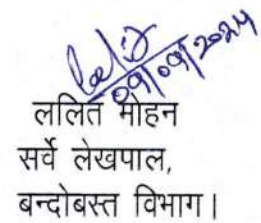 09/09/2024
ललित मोहन
सर्वे लेखपाल,
बन्दोबस्त विभाग।